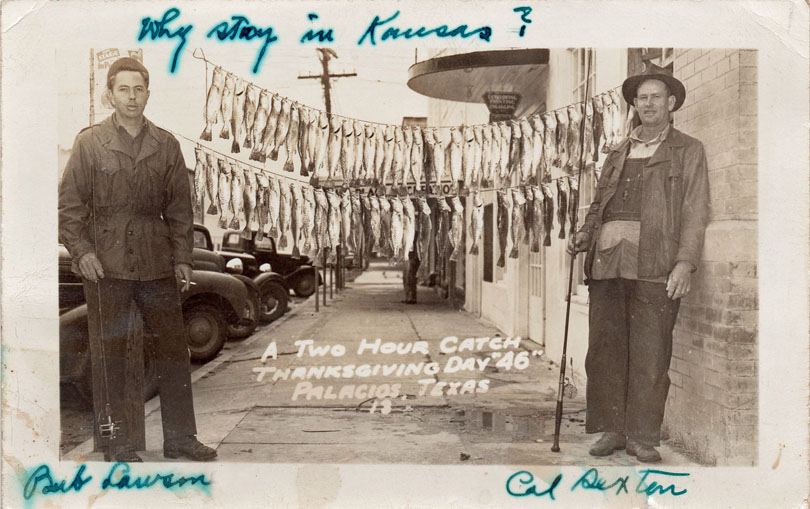 Why stay in Kansas?
A Two Hour Catch
Thanksgiving Day "46"
Palacios, Texas
13
Bub Lawson
Cal Sexton